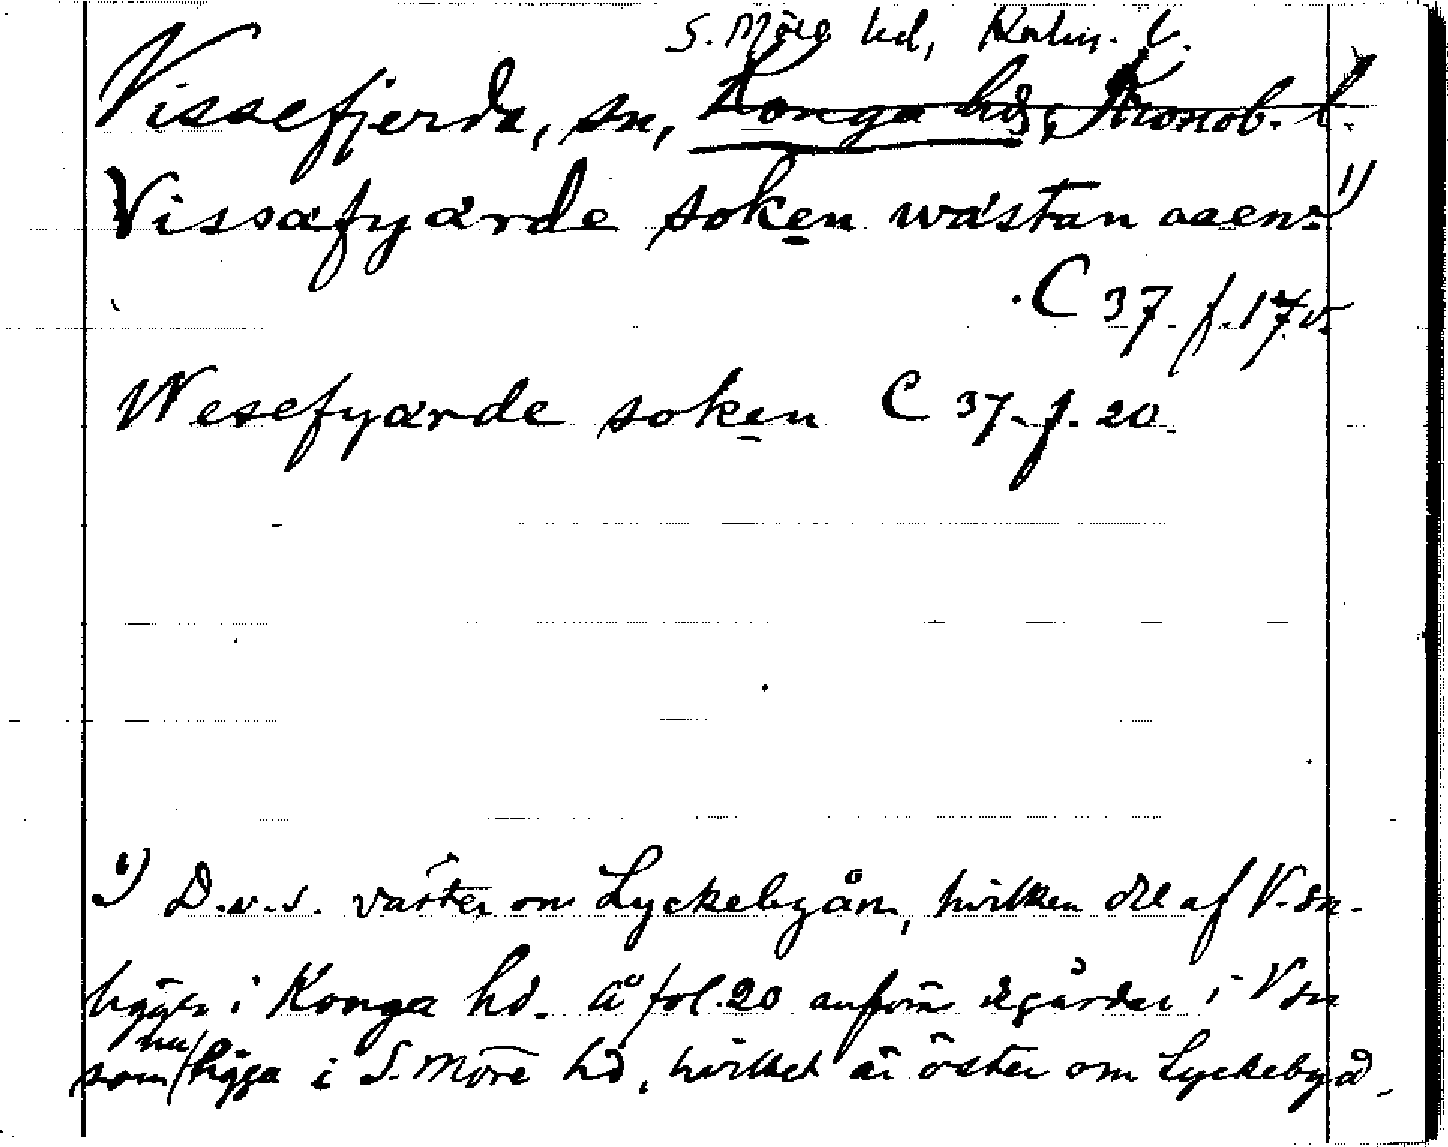 S. Möre hd, Kalm. l.
Vissefjerda, sn, Konga hd, Kronob. l.
Vissafyærde soken wæstan aaen: 1)
C 37 f. 17 v.
Wesefyærde soken C 37 f. 20
1) D.v.s. väster om Lyckebyån, hvilken del af V. sn.
ligger i Konga hd. Å fol. 20 anföras gårdar i V sn
nu
som ligga i S. Möre hd, hvilket är öster om Lyckebyå.